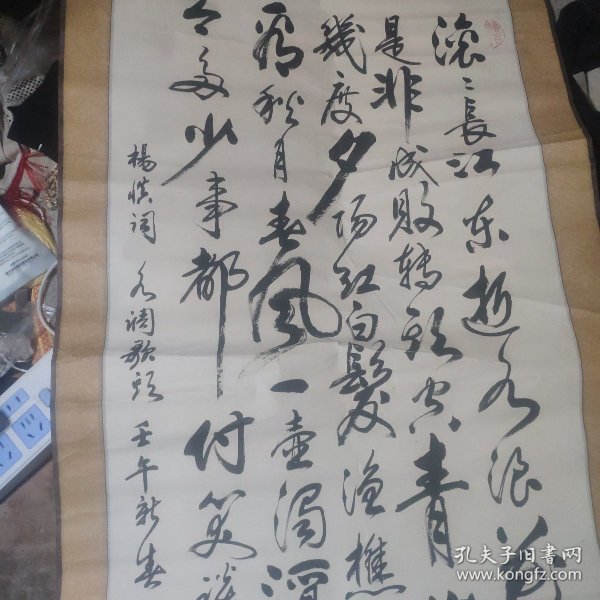 滚〻長江东逝水浪花
是非成败转頭空青山
幾度夕阳红白髮渔樵
看秋月春风一壶濁酒
今多少事都付笑谈
楊慎词 水调歌头 壬午新春
孔夫子旧书网
www.kongfz.com